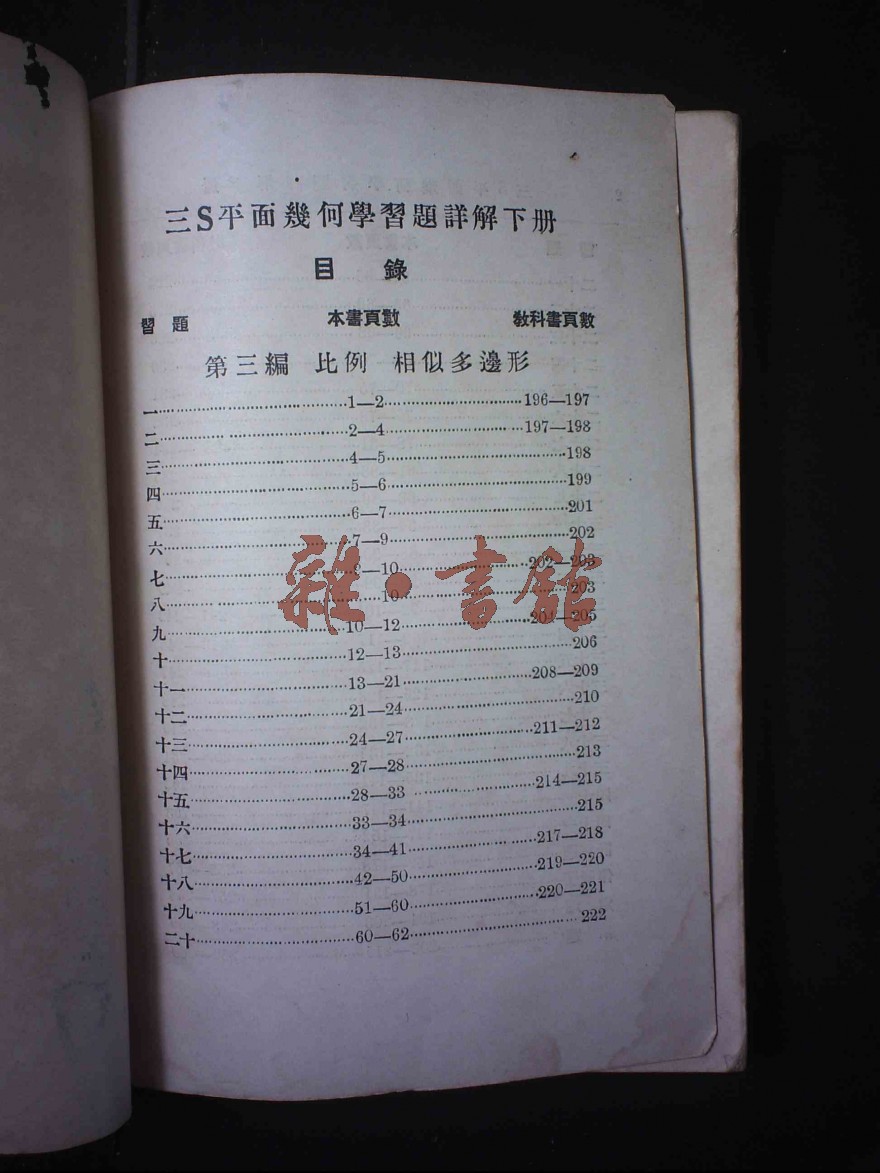 三S平面幾何學習題詳解下册
目 錄
習 題 本書頁數 敎科書頁數
第三編 比例 相似多邊形
一……1—2……196—197
二……2—4……197—198
三……4—5……198
四……5—6……199
五……6—7……201
六……7—9……202
七……9—10……202—203
八……10……203
九……10—12……204—205
十……12—13……206
十一……13—21……208—209
十二……21—24……210
十三……24—27……211—212
十四……27—28……213
十五……28—33……214—215
十六……33—34……215
十七……34—41……217—218
十八……42—50……219—220
十九……51—60……220—221
二十……60—62……222
雜·書館